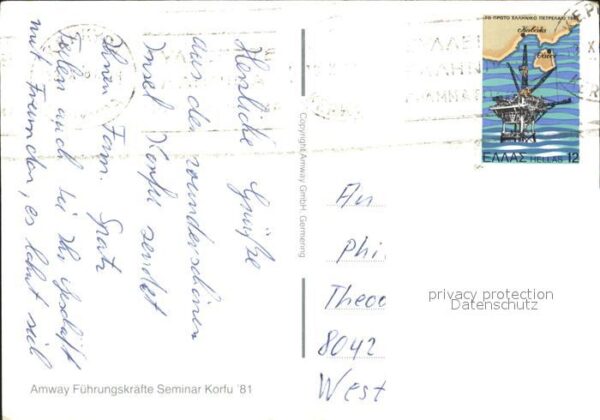 Herzliche Grüße
aus der wunderschönen
Insel Korfu sendet
Ihnen Fam. Spatz
Teilen auch Sie Ihr Geschäft
mit Freunden, es lohnt sich
Amway Führungskräfte Seminar Korfu '81
Copyright Amway GmbH, Germering
ΤΟ ΠΡΩΤΟ ΕΛΛΗΝΙΚΟ ΠΕΤΡΕΛΑΙΟ
ΕΛΛΑΣ HELLAS 12
An
Phi
Theo
8042
West
privacy protection
Datenschutz